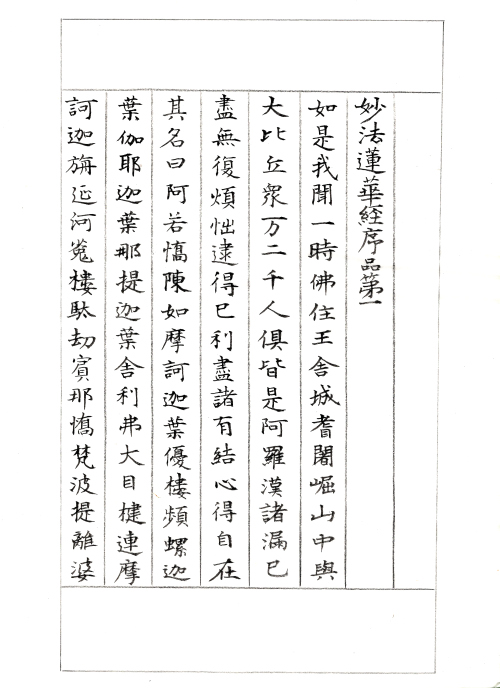 妙法蓮華経序品第一
如是我聞一時佛住王舎城耆闍崛山中與
大比丘衆万二千人倶皆是阿羅漢諸漏已
盡無復煩悩逮得己利盡諸有結心得自在
其名曰阿若憍陳如摩訶迦葉優樓頻螺迦
葉伽耶迦葉那提迦葉舎利弗大目揵連摩
訶迦旃延阿㝹樓駄劫賓那憍梵波提離婆